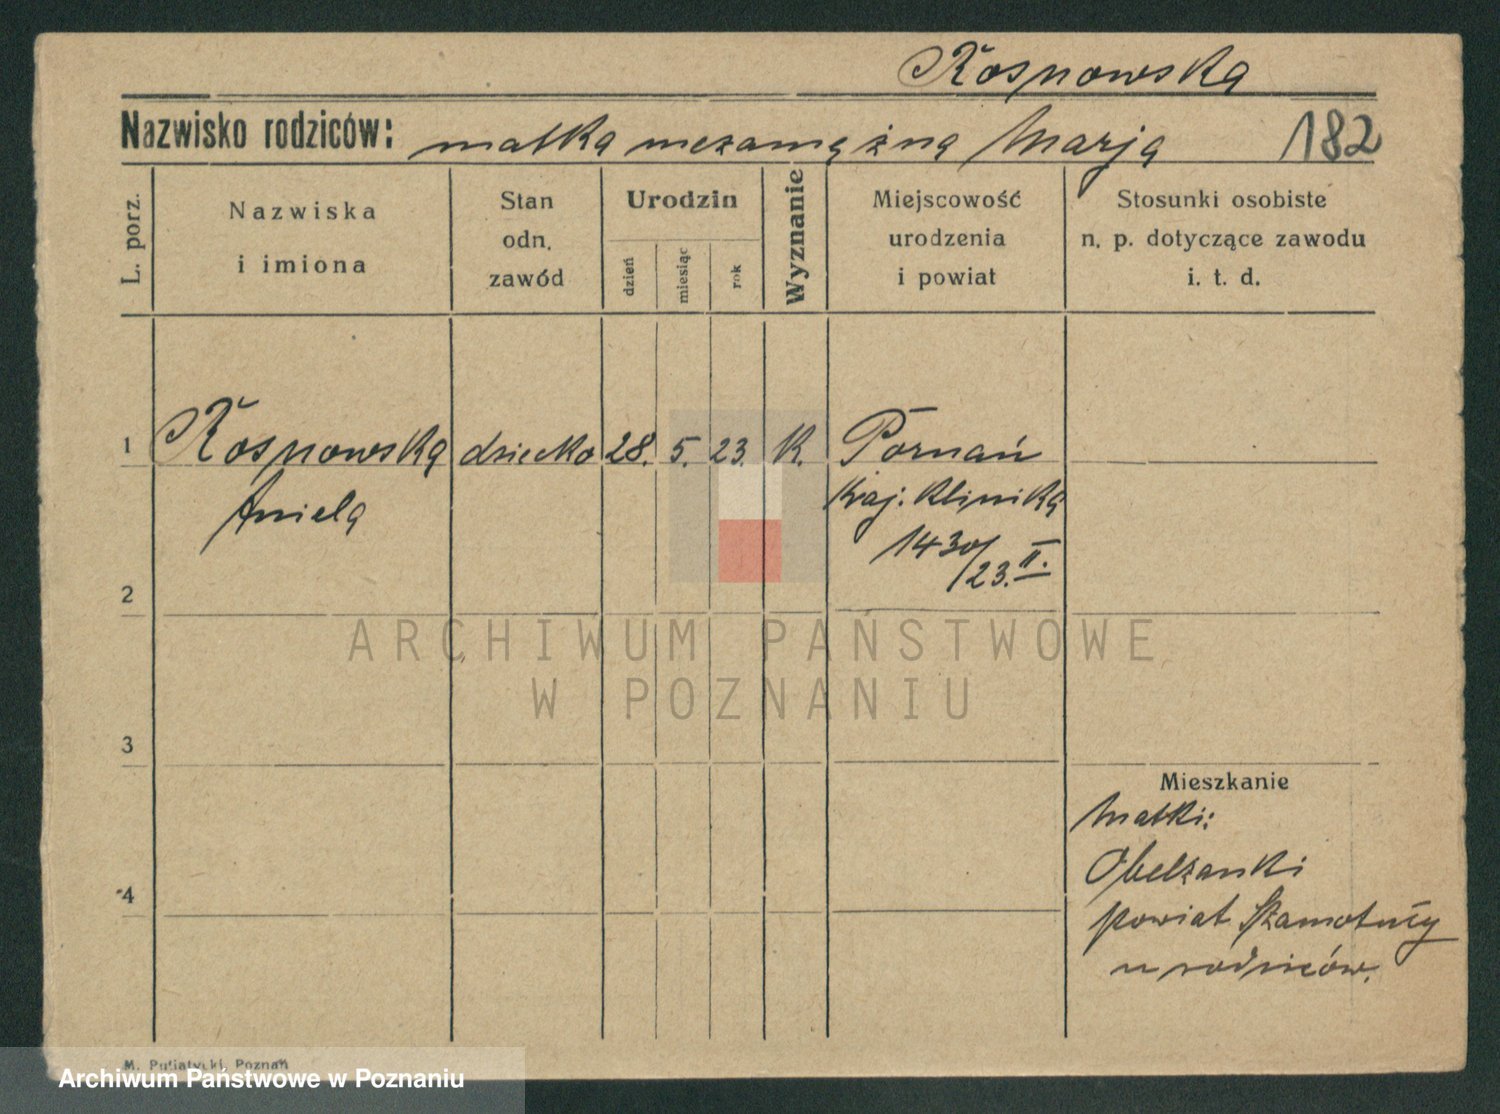 Rospowska
Nazwisko rodziców: matka niezamężna Marja 182
L. porz.
Nazwiska
i imiona
Stan
odn.
zawód
Urodzin
dzień
miesiąc
rok
Wyznanie
Miejscowość
urodzenia
i powiat
Stosunki osobiste
n. p. dotyczące zawodu
i. t. d.
1 Rospowska dziecko 28. 5. 23. K. Poznań
Aniela Kraj. Klinika
1430/23. II.
2
3
4
Mieszkanie
Matki:
Obelzanki
powiat Szamotuły
u rodziców.
M. Putiatycki, Poznań
ARCHIWUM PAŃSTWOWE
W POZNANIU
Archiwum Państwowe w Poznaniu